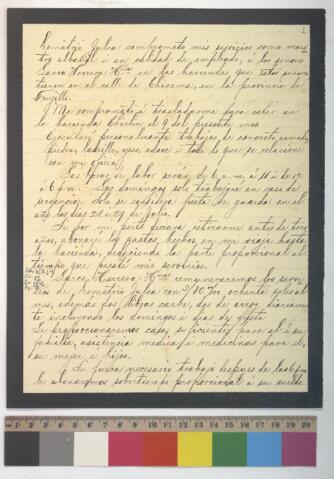 1
Demetrio Julca comprometo mis servicios como maes-
tro albañil i en calidad de empleado, a los señores
Larco Herrera Hnos en las haciendas que estos señores
tienen en el valle de Chicama, en la provincia de
Trujillo.
Me comprometo a trasladarme para estar en
la hacienda Chiclín, el 9 del presente mes.
Ejecutaré personalmente trabajos de concreto armado,
piedra, ladrillo, que, adobe i todo lo que se relacione
con mi oficio.
Las horas de labor serán de 6 a.m. á 11 i de 12
á 6 p.m. Los domingos solo trabajaré en caso de
urgencia. Solo se considera fiesta de guarda en el
año los días 28 i 29 de Julio.
Si por mi parte deseara retirarme antes de tres
años, abonaré los gastos hechos en mi viaje hasta
la hacienda, deduciendo la parte proporcional al
tiempo que preste mis servicios.
Larco Herrera Hnos remuneraremos los servi-
cios de Demetrio Julca con S/ 80 Tos ochenta soles al
mes, además dos libras carne, dos de arroz diariamen-
te incluyendo los domingos i días de fiesta.
Le proporcionaremos casa suficiente para él i su
familia, asistencia medica i medicinas para él,
su mujer e hijos.
Si fuera necesario trabajo despues de las 6 p.m.
le abonaremos sobretiempo proporcional á su sueldo
1 2 3 4 5 6 7 8 9 10 11 12 13 14 15 16 17 18 19 20